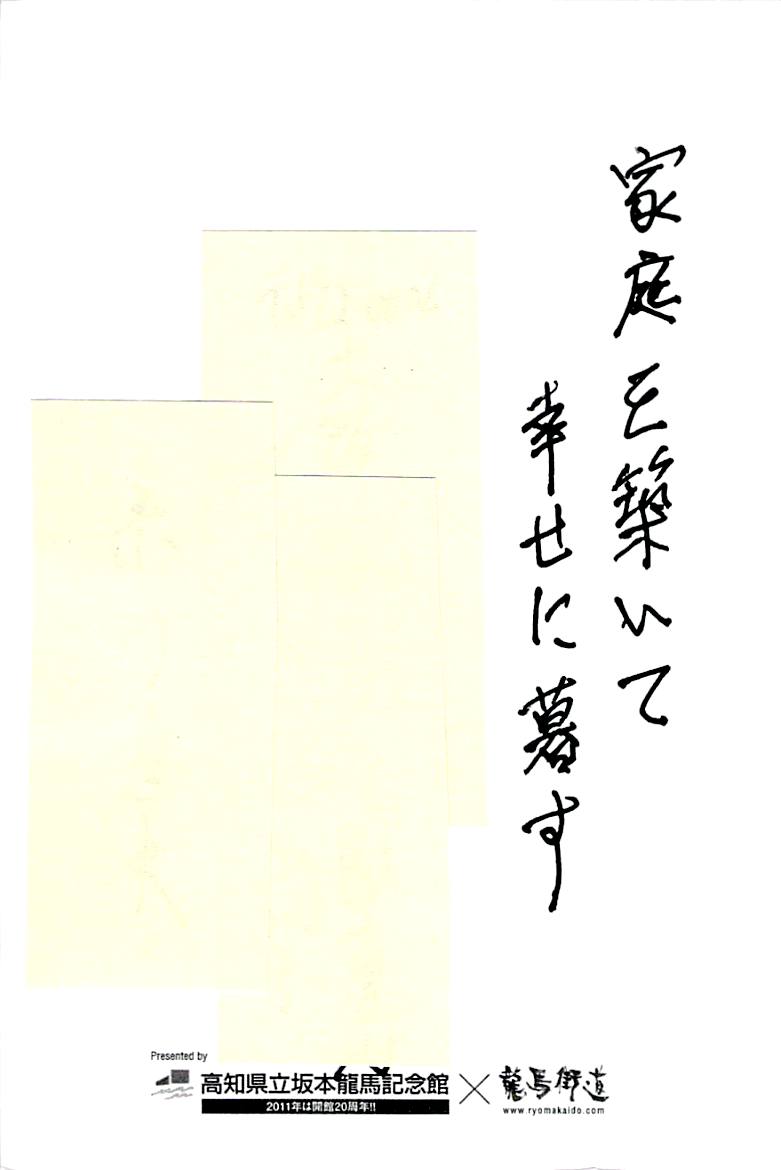 家庭を築いて
幸せに暮す
Presented by
高知県立坂本龍馬記念館
2011年は開館20周年!!
×
龍馬街道
www.ryomakaido.com